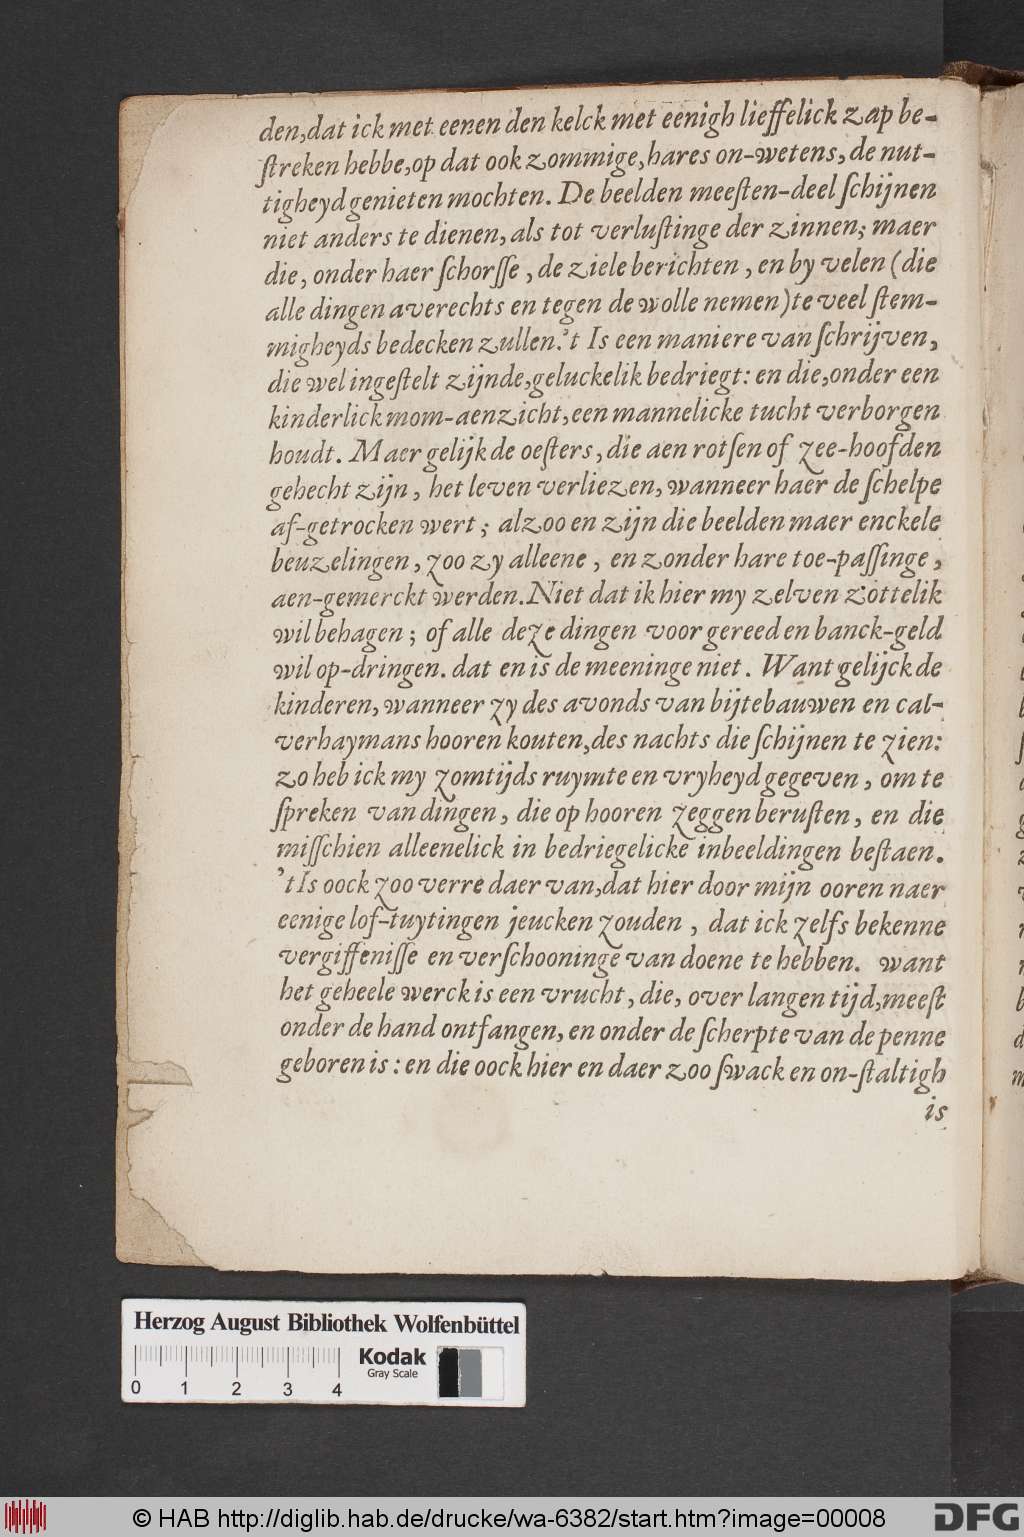 den, dat ick met eenen den kelck met eenigh lieffelick zap be-
ſtreken hebbe, op dat ook zommige, hares on-wetens, de nut-
tigheyd genieten mochten. De beelden meeſten-deel ſchijnen
niet anders te dienen, als tot verluſtinge der zinnen; maer
die, onder haer ſchorſſe, de ziele berichten, en by velen (die
alle dingen averechts en tegen de wolle nemen) te veel ſtem-
migheyds bedecken zullen. 't Is een maniere van ſchrijven,
die wel ingeſtelt zijnde, geluckelik bedriegt: en die, onder een
kinderlick mom-aenzicht, een mannelicke tucht verborgen
houdt. Maer gelijk de oeſters, die aen rotſen of zee-hoofden
gehecht zijn, het leven verliezen, wanneer haer de ſchelpe
af-getrocken wert; alzoo en zijn die beelden maer enckele
beuzelingen, zoo zy alleene, en zonder hare toe-paſſinge,
aen-gemerckt werden. Niet dat ik hier my zelven zottelik
wil behagen; of alle deze dingen voor gereed en banck-geld
wil op-dringen. dat en is de meeninge niet. Want gelijck de
kinderen, wanneer zy des avonds van bijtebauwen en cal-
verhaymans hooren kouten, des nachts die ſchijnen te zien:
zo heb ick my zomtijds ruymte en vryheyd gegeven, om te
ſpreken van dingen, die op hooren zeggen beruſten, en die
miſſchien alleenelick in bedriegelicke inbeeldingen beſtaen.
't Is oock zoo verre daer van, dat hier door mijn ooren naer
eenige lof-tuytingen jeucken zouden, dat ick zelfs bekenne
vergiffeniſſe en verſchooninge van doene te hebben. want
het geheele werck is een vrucht, die, over langen tijd, meeſt
onder de hand ontfangen, en onder de ſcherpte van de penne
geboren is: en die oock hier en daer zoo ſwack en on-ſtaltigh
is
Herzog August Bibliothek Wolfenbüttel
Kodak
Gray Scale
0 1 2 3 4
© HAB http://diglib.hab.de/drucke/wa-6382/start.htm?image=00008
DFG